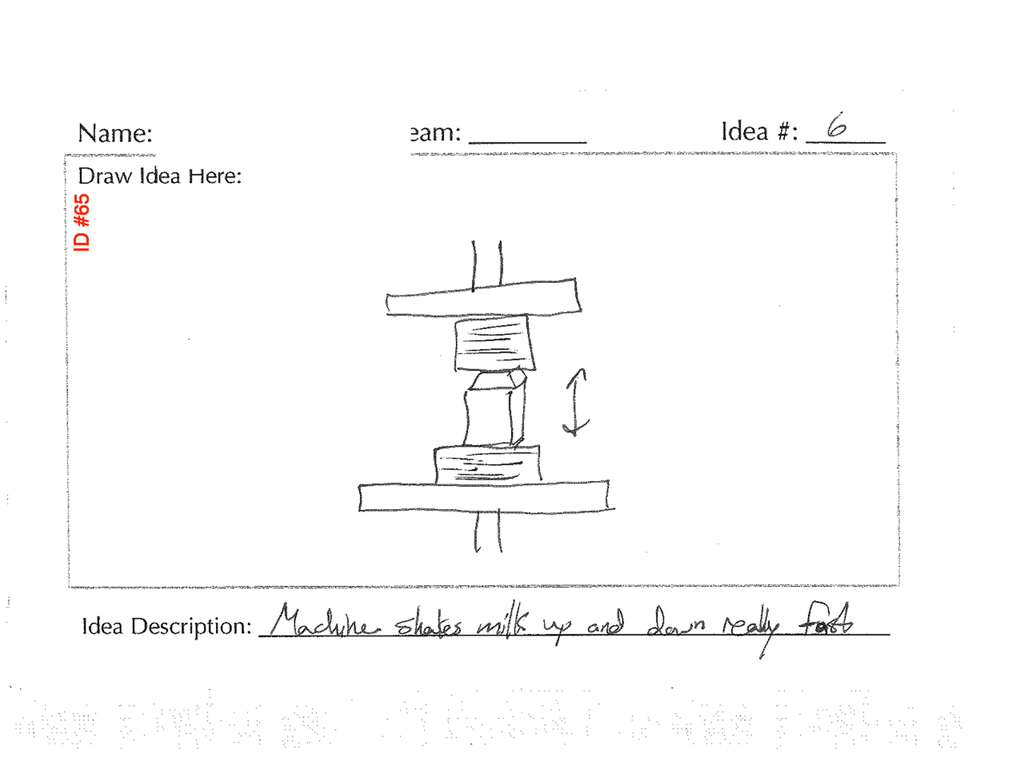 Name: eam: Idea #: 6
Draw Idea Here:
ID #65
Idea Description: Machine shakes milk up and down really fast